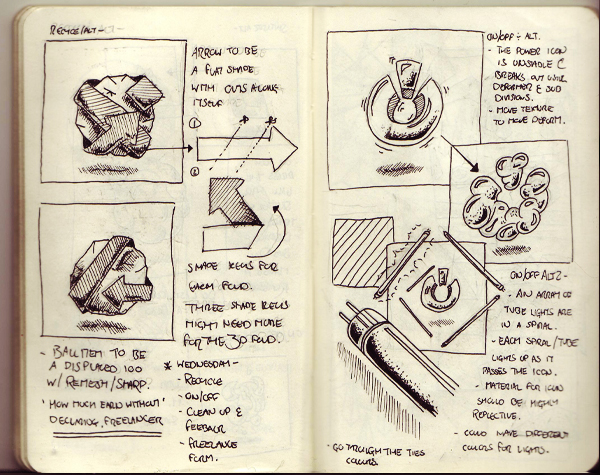 RECYCLE/ALT -
ARROW TO BE
A FLAT SHAPE
WITH CUTS ALONG
ITSELF
①
②
SHAPE KEYS FOR
EACH FOLD.
THREE SHAPE KEYS
MIGHT NEED MORE
FOR THE 3D FOLD.
- BALL ITEM TO BE
A DISPLACED 100
W/ REMESH/SHARP.
'HOW MUCH EARN WITHOUT'
DECLARING, FREELANCER
* WEDNESDAY -
- RECYCLE
- ON/OFF
- CLEAN UP &
FEEDBACK
- FREELANCE
FORM.
ON/OFF - ALT.
- THE POWER ICON
IS UNSTABLE &
BREAKS OUT WITH
DEFORMER & SUB
DIVISIONS.
- MOVE TEXTURE
TO MOVE DEFORM.
ON/OFF ALT2 -
- AN ARRAY OF
TUBE LIGHTS ARE
IN A SPIRAL.
- EACH SPIRAL/TUBE
LIGHTS UP AS IT
PASSES THE ICON.
- MATERIAL FOR ICON
SHOULD BE HIGHLY
REFLECTIVE.
- COULD HAVE DIFFERENT
COLORS FOR LIGHTS.
- GO THROUGH THE TIES
COLORS.